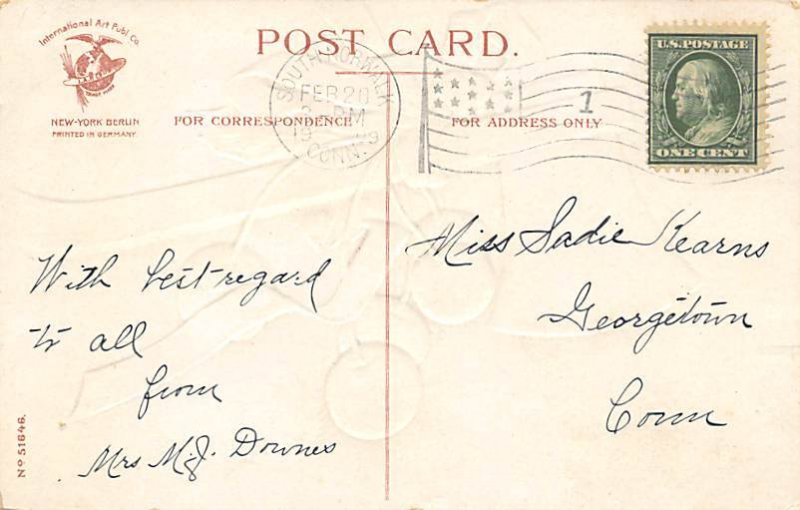 International Art Publ. Co.
NEW-YORK BERLIN
PRINTED IN GERMANY.
POST CARD.
FOR CORRESPONDENCE
FOR ADDRESS ONLY
SOUTH NORWALK
FEB 20
PM
CONN.
1
U.S. POSTAGE
ONE CENT
With best regard
to all
from
Mrs M.J. Downes
Miss Sadie Kearns
Georgetown
Conn
No 51646.